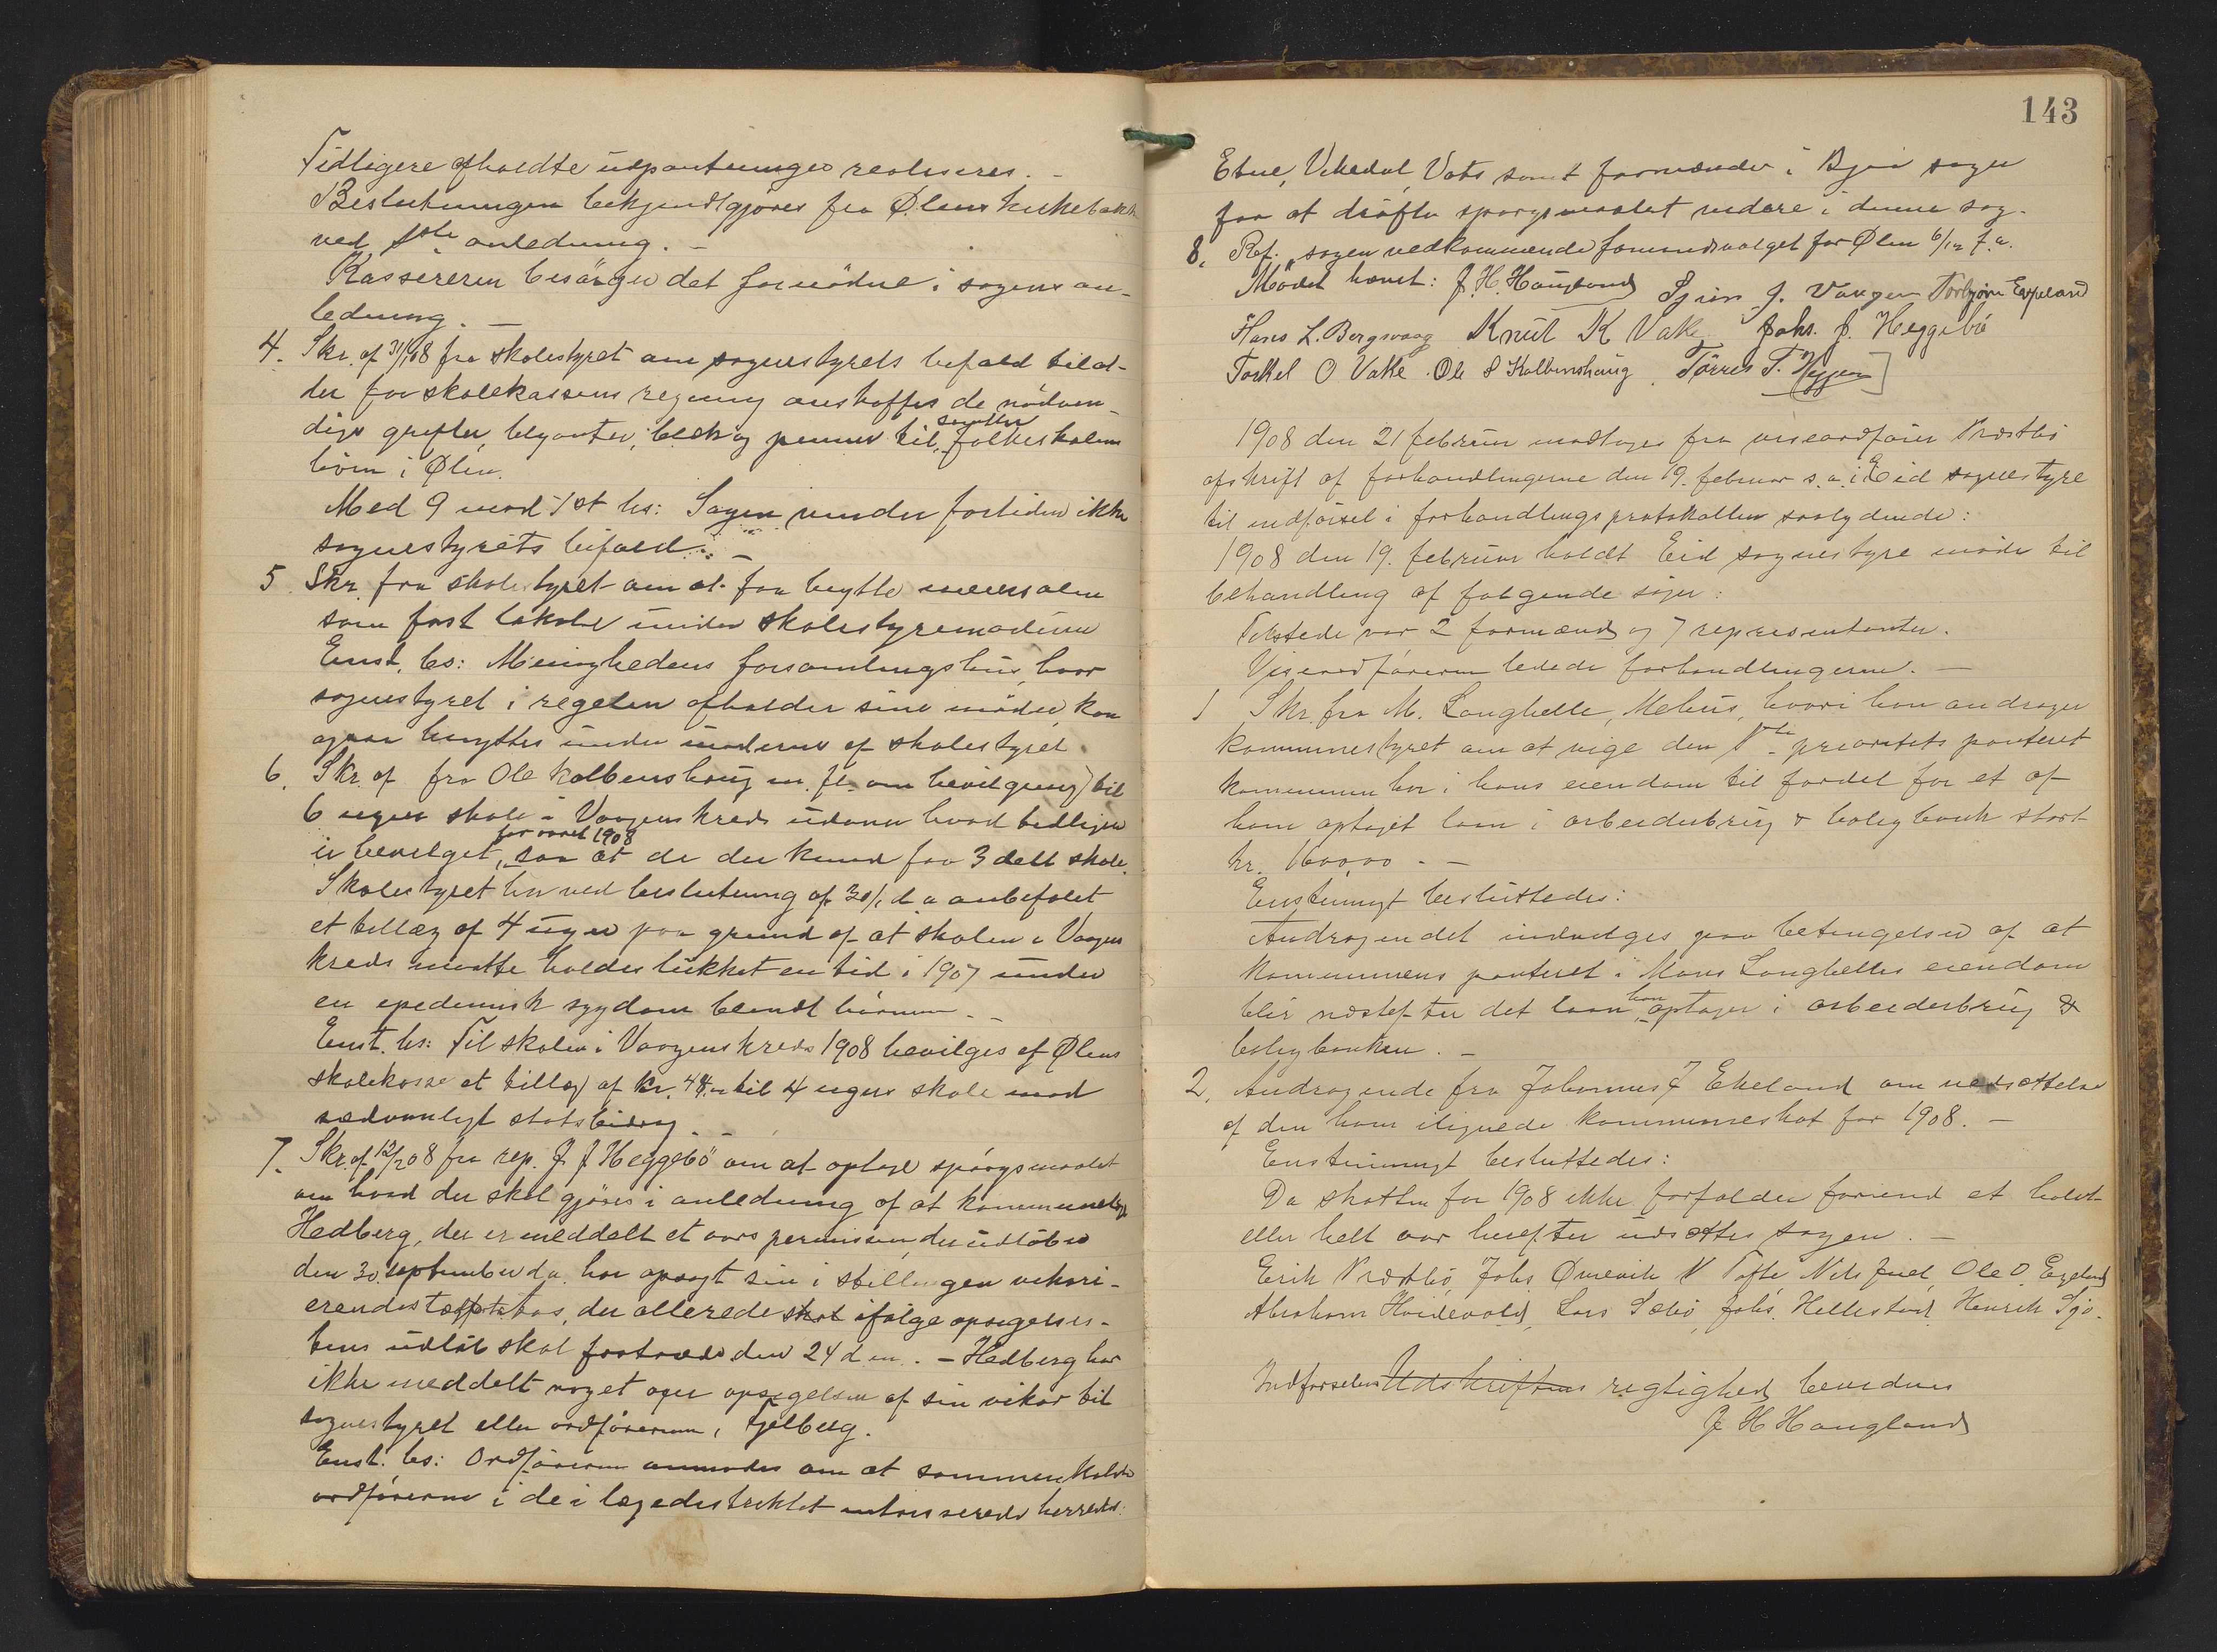 Tidligere afholdte udpantninger realiseres. -
Beslutningen bekjendtgjøres fra Ølens kirkebakke
ved 1ste anledning. -
Kassereren besørger det fornødne i sagens an-
ledning. -
4. Skr. af 31/1 08 fra skolestyret om sognestyrets bifald til at
der for skolekassens regning anskaffes de nødven-
dige grifler, blyanter, blæk og penner til samtlige folkeskolens
børn i Ølen.
Med 9 mod 1 st bs: Sagen vinder fortiden ikke
sognestyrets bifald. -
5. Skr. fra skolestyret om at faa benytte
som fast lokale under skolestyremøderne
Enst. bs: Menighedens forsamlingshus, hvor
sognestyret i regelen afholder sine møder, kan
ogsaa benyttes under møderne af skolestyret.
6. Skr. af fra Ole Kolbenshaug m. fl. om bevilgning til
6 ugers skole i Vaagens kreds udover hvad tidligere
er bevilget, for aaret 1908 saa at de der kunde faa 3 delt skole.
Skolestyret har ved beslutning af 30/1 d a anbefalet
et tillæg af 4 uger paa grund af at skolen i Vaagens
kreds maatte holdes lukket en tid i 1907 under
en epedemisk sygdom blandt børnene. -
Enst. bs: Til skolen i Vaagens kreds 1908 bevilges af Ølens
skolekasse et tillæg af kr. 44.- til 4 ugers skole mod
sædvanligt statsbidrag. -
7. Skr. af 12/2 08 fra rep. J. J. Heggebö om at optage spørgsmaalet
om hvad der skal gjøres i anledning af at kommunelæge
Hedberg, der er meddelt et aars permission, der udløber
den 30. september d.a. har opsagt sin i stillingen vikari-
erende der allerede skal ifølge opsigelses-
tens udløb skal fratræde den 24 d m. - Hedberg har
ikke meddelt noget om opsigelsen af sin vikar til
sognestyret eller ordføreren i Fjelberg.
Enst. bs: Ordføreren anmodes om at sammenkalde
ordførerne i de i lægedistriktet interesserede herreder:
143
Etne, Vikedal, Vats samt formænder i Bjoa sogn
for at drøfte spørgsmaalet videre i denne sag.
8. Ref. sagen vedkommende formandsvalget for Ølen 6/12 f.a.
Mødet hævet: J. H. Haugland Sjur J. Vaagen Torbjørn Espeland
Hans L. Bergsvaag Knut K Vake Johs. J. Heggebö
Torkel O Vake. Ole S Kolbenshaug. Tørres T.
1908 den 21 februar modtages fra viseordfører Præstbö
afskrift af forhandlingerne den 19. februar s.a. i Eid sognestyre
til indførsel i forhandlingsprotokollen saalydende:
1908 den 19. februar holdt Eid sognestyre møde til
behandling af følgende sager:
Tilstede var 2 formænd og 7 representanter.
Viseordføreren ledede forhandlingerne. -
1 Skr. fra M. Langhelle, Mehus, hvori han andrager
kommunestyret om at vige den 1ste prioritets panteret
kommunen har i hans eiendom til fordel for et af
ham optaget laan i arbeiderbrug & boligbank stort
kr. 1600,00. -
Enstemmigt besluttedes:
Andragendet indvilges paa betingelse af at
kommunens panteret i Mons Langhelles eiendom
blir næstefter det laan han optager i arbeiderbrug &
boligbanken. -
2. Andragende fra Johannes J Ekeland om nedsættelse
af den ham ilignede kommuneskat for 1908. -
Enstemmigt besluttedes:
Da skatten for 1908 ikke forfalder forinend et halvt
eller helt aar herefter udsættes sagen. -
Erik Præstbö, Johs Ørnevik N Tofte Nils Juel, Ole O. Egeland
Abraham Hoidevold, Lars Sæbö, Johs. Hellestad, Henrik Sjo.
Indførselens Udskriftens rigtighed bevidnes
J H Haugland